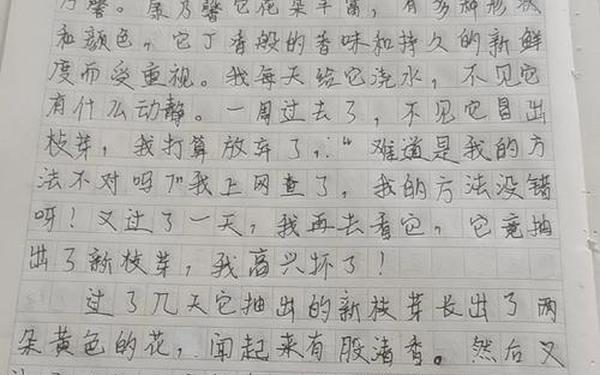 乃馨。康乃馨它花朵丰富，有多种形状
和颜色，它丁香般的香味和持久的新鲜
度而受重视。我每天给它浇水，不见它
有什么动静。一周过去了，不见它冒出
枝芽，我打算放弃了，“难道是我的方
法不对吗？”我上网查了，我的方法没错
呀！又过了一天，我再去看它，它竟抽
出了新枝芽，我高兴坏了！
过了几天它抽出的新枝芽长出了两
朵黄色的花，闻起来有股清香。然后又